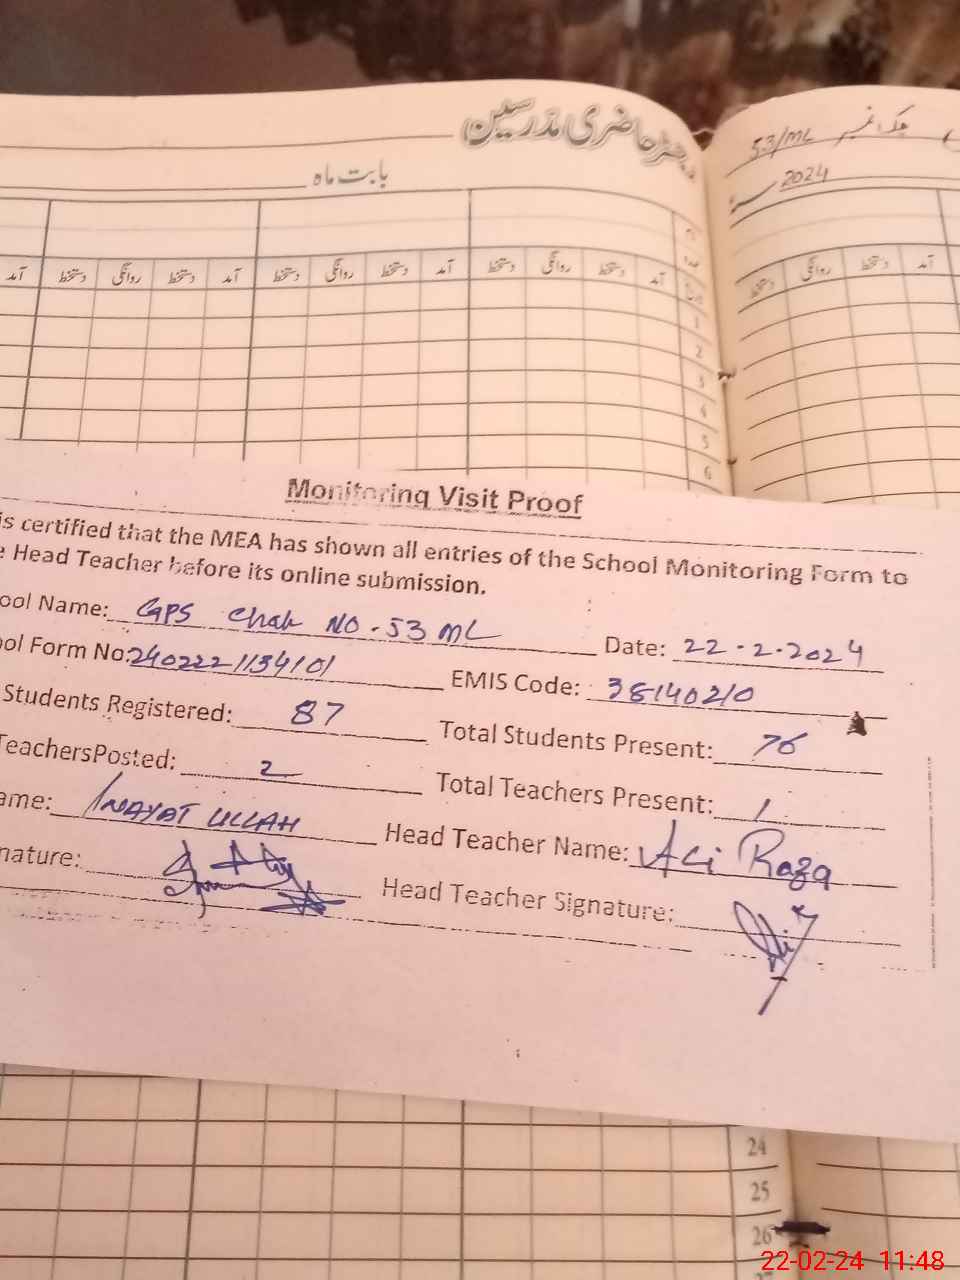 رجسٹر حاضری مدرسین
چک نمبر 53/ML
بابت ماہ
2024
آمد دستخط روانگی دستخط آمد دستخط روانگی دستخط آمد دستخط
آمد دستخط روانگی دستخط
1
2
3
4
5
6
Monitoring Visit Proof
is certified that the MEA has shown all entries of the School Monitoring Form to
e Head Teacher before its online submission.
ool Name: GPS Chak No. 53 ML Date: 22-2-2024
ool Form No: 2402221134101 EMIS Code: 38140210
Students Registered: 87 Total Students Present: 76
TeachersPosted: 2 Total Teachers Present: 1
ame: INAYAT ULLAH Head Teacher Name: Ali Raza
nature: Head Teacher Signature:
24
25
26
27
22-02-24 11:48